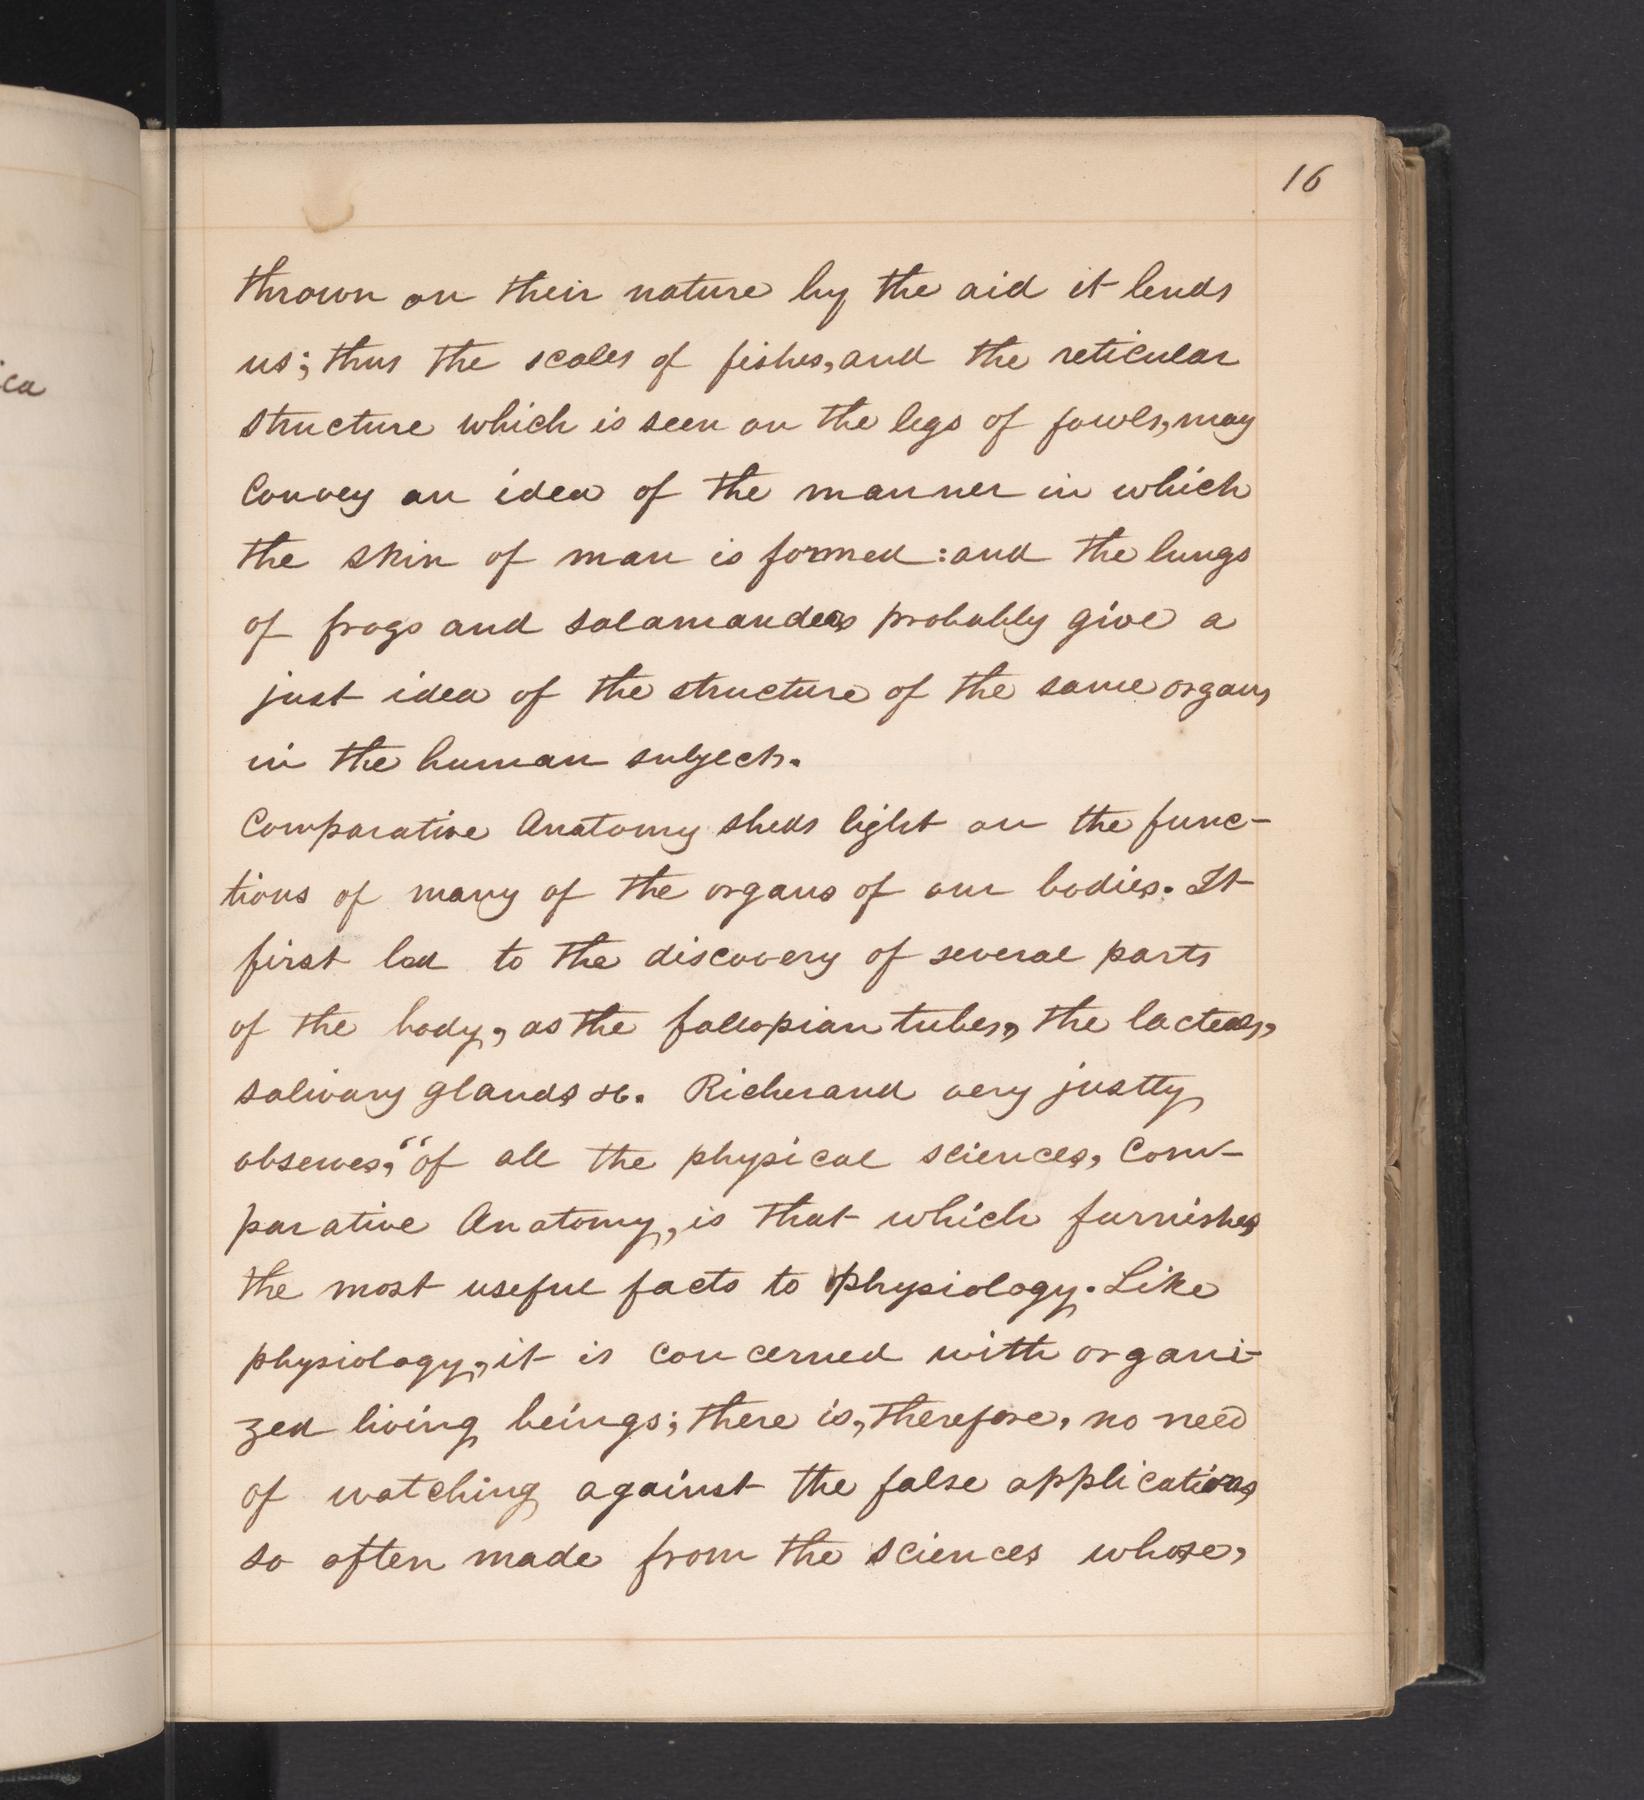 16
ica
thrown on their nature by the aid it lends
us; thus the scales of fishes, and the reticular
structure which is seen on the legs of fowls, may
Convey an idea of the manner in which
the skin of man is formed: and the lungs
of frogs and salamanders probably give a
just idea of the structure of the same organs
in the human subject.
Comparative Anatomy sheds light on the func-
tions of many of the organs of our bodies. It
first led to the discovery of several parts
of the body, as the fallopian tubes, the lacteals,
salivary glands &c. Richerand very justly
observes, "of all the physical sciences, Com-
parative Anatomy, is that which furnishes
the most useful facts to physiology. Like
physiology, it is concerned with organi-
zed living beings; there is, therefore, no need
of watching against the false applications
so often made from the sciences whose,